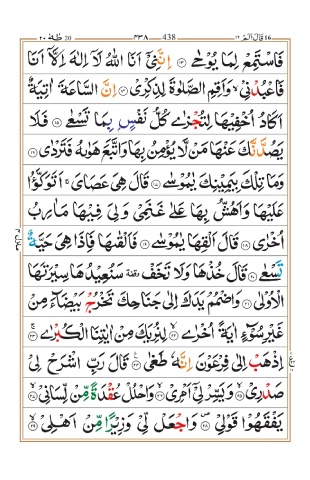 طٰهٰ ٢٠ 20 ٤٣٨ 438 قال الم ١٦ 16
فَاسْتَمِعْ لِمَا يُوْحٰى ﴿۱۳﴾ اِنَّنِيْۤ اَنَا اللّٰهُ لَاۤ اِلٰهَ اِلَّاۤ اَنَا
فَاعْبُدْنِيْ ۙ وَاَقِمِ الصَّلٰوةَ لِذِكْرِيْ ﴿۱۴﴾ اِنَّ السَّاعَةَ اٰتِيَةٌ
اَكَادُ اُخْفِيْهَا لِتُجْزٰى كُلُّ نَفْسٍۭ بِمَا تَسْعٰى ﴿۱۵﴾ فَلَا
يَصُدَّنَّكَ عَنْهَا مَنْ لَّا يُؤْمِنُ بِهَا وَاتَّبَعَ هَوٰىهُ فَتَرْدٰى ﴿۱۶﴾
وَمَا تِلْكَ بِيَمِيْنِكَ يٰمُوْسٰى ﴿۱۷﴾ قَالَ هِيَ عَصَايَ ۚ اَتَوَكَّؤُا
عَلَيْهَا وَاَهُشُّ بِهَا عَلٰى غَنَمِيْ وَلِيَ فِيْهَا مَاٰرِبُ
اُخْرٰى ﴿۱۸﴾ قَالَ اَلْقِهَا يٰمُوْسٰى ﴿۱۹﴾ فَاَلْقٰىهَا فَاِذَا هِيَ حَيَّةٌ
تَسْعٰى ﴿۲۰﴾ قَالَ خُذْهَا وَلَا تَخَفْ ۥ وقفة سَنُعِيْدُهَا سِيْرَتَهَا
الْاُوْلٰى ﴿۲۱﴾ وَاضْمُمْ يَدَكَ اِلٰى جَنَاحِكَ تَخْرُجْ بَيْضَآءَ مِنْ
غَيْرِ سُوْٓءٍ اٰيَةً اُخْرٰى ﴿۲۲﴾ لِنُرِيَكَ مِنْ اٰيٰتِنَا الْكُبْرٰى ﴿۲۳﴾
اِذْهَبْ اِلٰى فِرْعَوْنَ اِنَّهٗ طَغٰى ﴿۲۴﴾ قَالَ رَبِّ اشْرَحْ لِيْ
صَدْرِيْ ﴿۲۵﴾ وَيَسِّرْ لِيْۤ اَمْرِيْ ﴿۲۶﴾ وَاحْلُلْ عُقْدَةً مِّنْ لِّسَانِيْ ﴿۲۷﴾
يَفْقَهُوْا قَوْلِيْ ﴿۲۸﴾ وَاجْعَلْ لِّيْ وَزِيْرًا مِّنْ اَهْلِيْ ﴿۲۹﴾